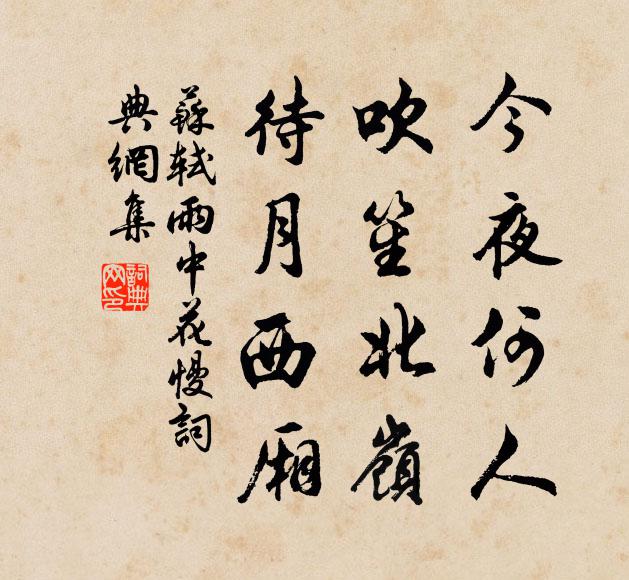 今夜何人
吹笙北嶺
待月西厢
蘇軾雨中花慢詞
典網集
詞典網印